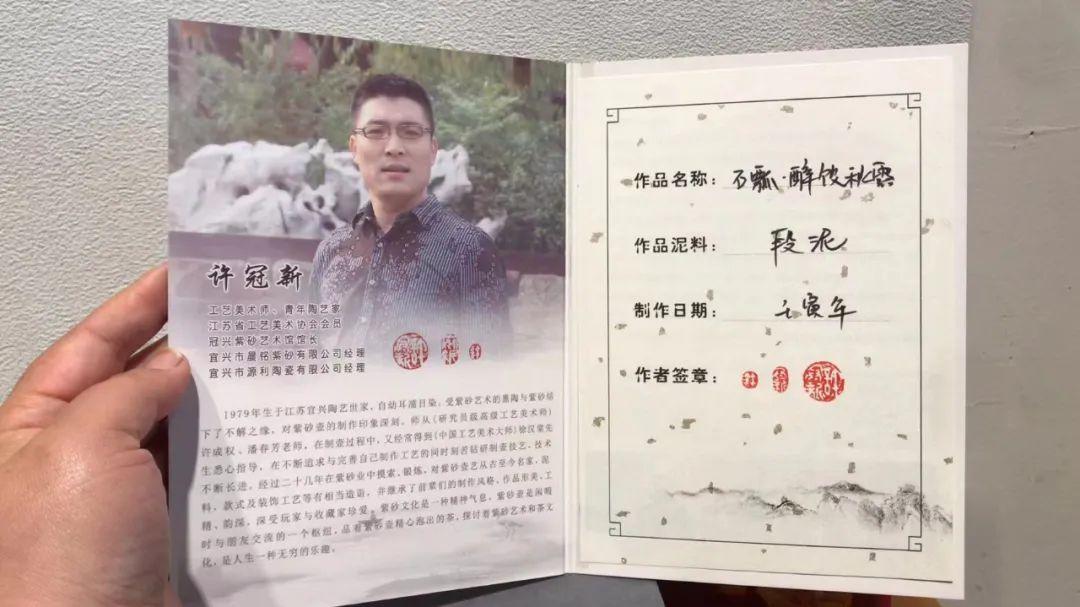 许冠新
工艺美术师、青年陶艺家
江苏省工艺美术协会会员
冠兴紫砂艺术馆馆长
宜兴市晨铭紫砂有限公司经理
宜兴市源利陶瓷有限公司经理
1979年生于江苏宜兴陶艺世家,自幼耳濡目染,受紫砂艺术的熏陶与紫砂结
下了不解之缘,对紫砂壶的制作印象深刻,师从(研究员级高级工艺美术师)
许成权、潘春芳老师,在制壶过程中,又经常得到(中国工艺美术大师)徐汉棠先
生悉心指导,在不断追求与完善自己制作工艺的同时刻苦钻研制壶技艺,技术
不断长进。经过二十几年在紫砂业中摸索、锻炼,对紫砂壶艺从古至今名家,泥
料,款式及装饰工艺等有相当造诣,并继承了前辈们的制作风格,作品形美、工
精、韵深,深受玩家与收藏家珍爱。紫砂文化是一种精神气息,紫砂壶是闲暇
时与朋友交流的一个枢纽,品着紫砂壶精心泡出的茶,探讨着紫砂艺术和茶文
化,是人生一种无穷的乐趣。
作品名称:石瓢·醉饮秋露
作品泥料:段泥
制作日期:壬寅年
作者签章: